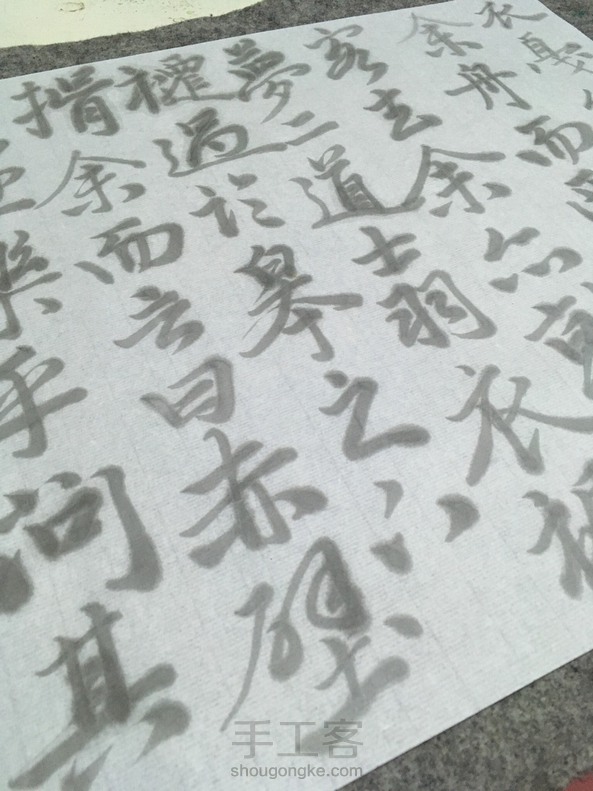 衣戛
余舟而
客去余亦就
夢二道士羽衣
過臨皋之下
揖余而言曰赤壁
樂乎問其
手工客
shougongke.com